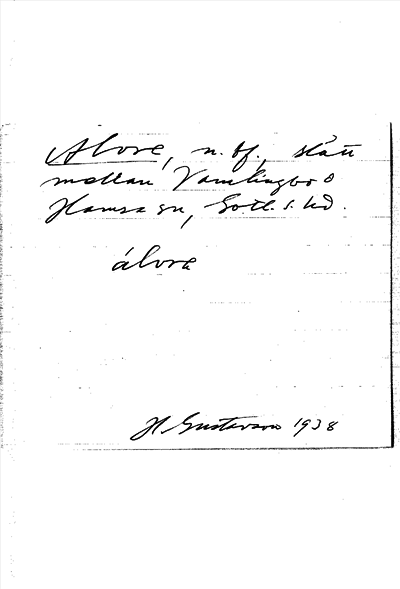 Alvre, n. bf., slätt
mellan Vamlingbo o
Hamra sn, Gotl. s. hd.
álvrε
H Gustavson 1938